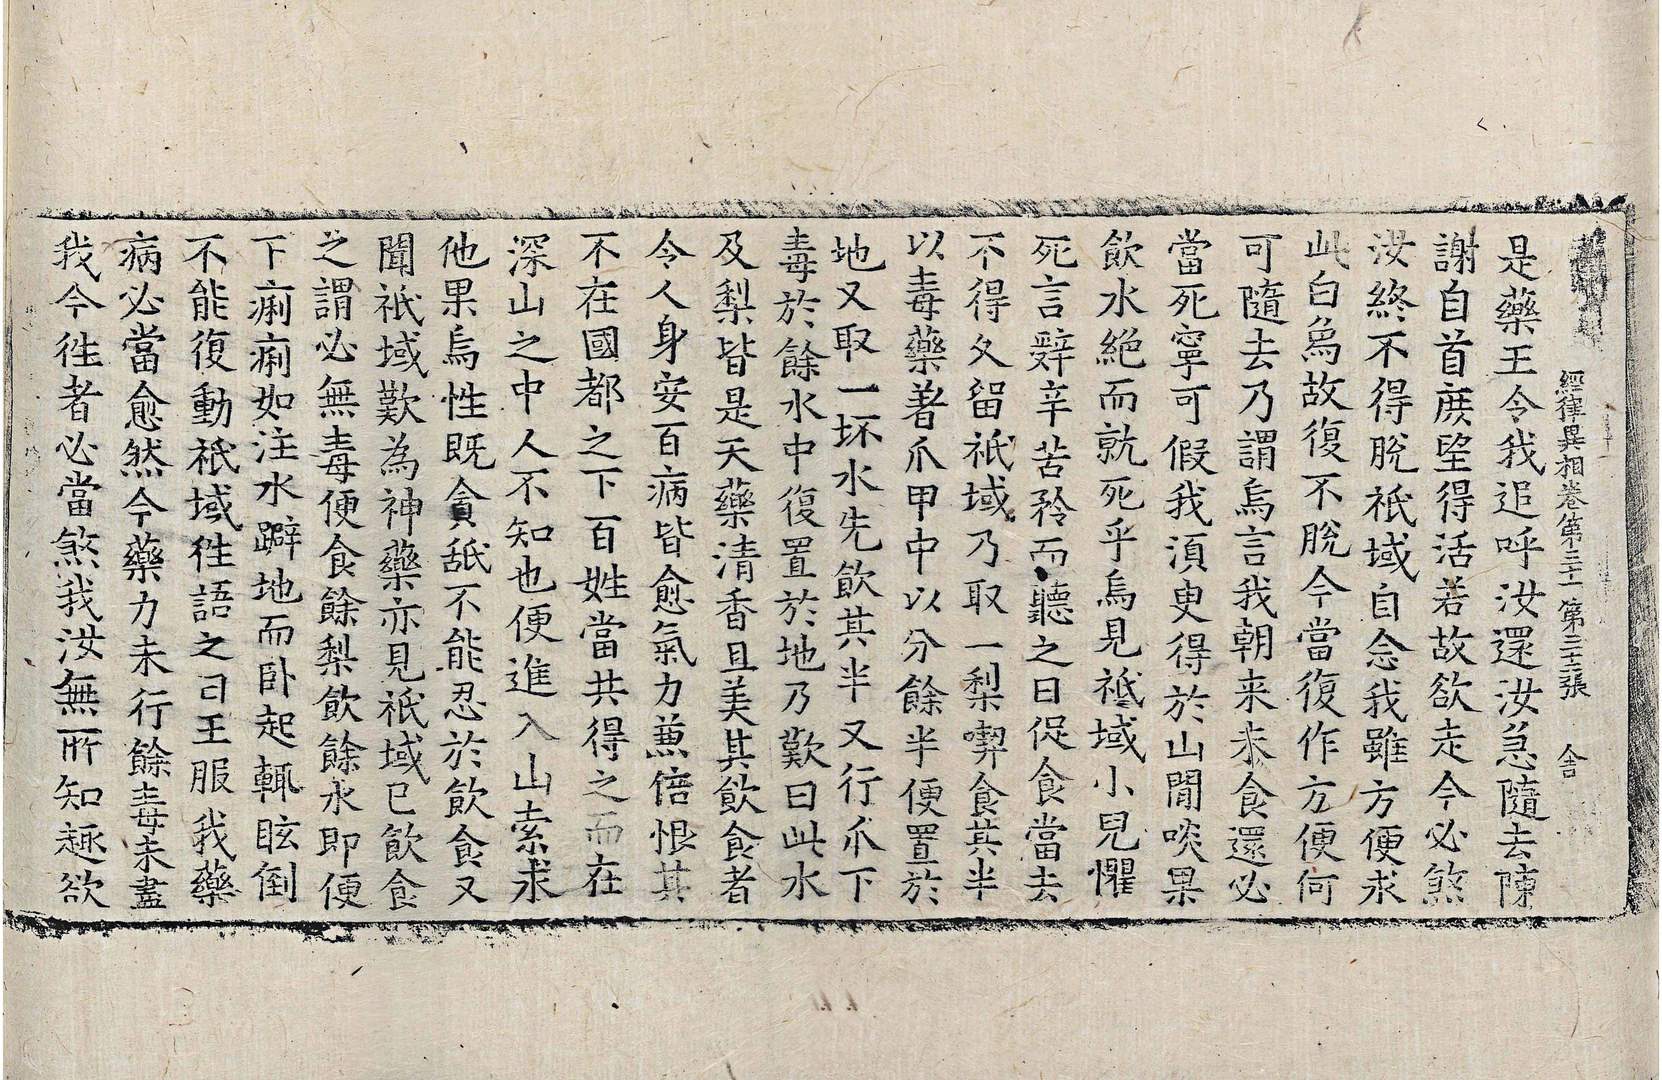 經律異相卷第三十一 第三十三張 舍
是藥王令我追呼汝還汝急隨去陳
謝自首庻望得活若故欲走今必煞
汝終不得脫祇域自念我雖方便求
此白爲故復不脫今當復作方便何
可隨去乃謂烏言我朝来未食還必
當死寧可假我湏臾得於山閒啖果
飮水絶而就死乎烏見祇域小兒懼
死言辭辛苦矜而聽之曰促食當去
不得久留祇域乃取一梨喫食其半
以毒藥著爪甲中以分餘半便置於
地又取一坏水先飮其半又行爪下
毒於餘水中復置於地乃歎曰此水
及梨皆是天藥清香且美其飮食者
令人身安百病皆愈氣力兼倍恨其
不在國都之下百姓當共得之而在
深山之中人不知也便進入山索求
他果烏性既貪䑛不能忍於飮食又
聞祇域歎為神藥亦見祇域已飮食
之謂必無毒便食餘梨飮餘水即便
下痢痢如注水躃地而卧起輒眩倒
不能復動祇域徃語之曰王服我藥
病必當愈然今藥力未行餘毒未盡
我今徃者必當煞我汝無所知趣欲